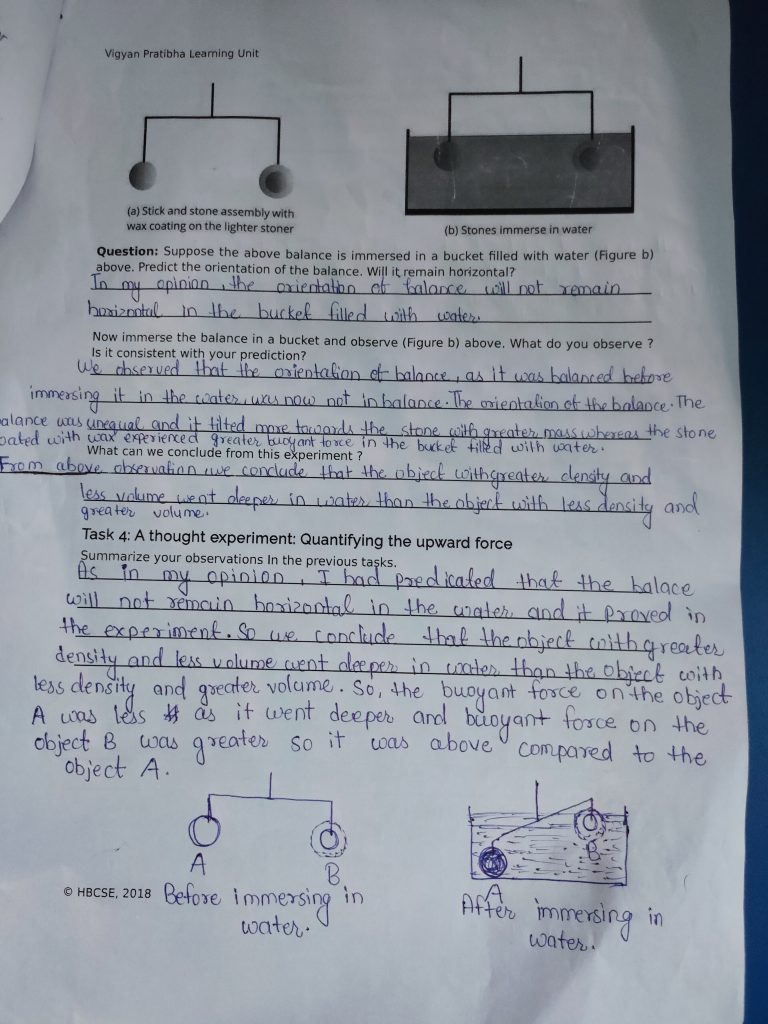 Vigyan Pratibha Learning Unit
(a) Stick and stone assembly with
wax coating on the lighter stoner
(b) Stones immerse in water
Question: Suppose the above balance is immersed in a bucket filled with water (Figure b)
above. Predict the orientation of the balance. Will it remain horizontal?
In my opinion, the orientation of balance will not remain
horizontal in the bucket filled with water.
Now immerse the balance in a bucket and observe (Figure b) above. What do you observe ?
Is it consistent with your prediction?
We observed that the orientation of balance, as it was balanced before
immersing it in the water, was now not in balance. The orientation of the balance. The
alance was unequal and it tilted more towards the stone with greater mass whereas the stone
oated with wax experienced greater buoyant force in the bucket filled with water.
What can we conclude from this experiment ?
From above observation, we conclude that the object with greater density and
less volume went deeper in water than the object with less density and
greater volume.
Task 4: A thought experiment: Quantifying the upward force
Summarize your observations In the previous tasks.
As in my opinion, I had predicated that the balace
will not remain horizontal in the water and it proved in
the experiment. So we conclude that the object with greater
density and less volume went deeper in water than the object with
less density and greater volume. So, the buoyant force on the object
A was less as it went deeper and buoyant force on the
object B was greater so it was above compared to the
object A.
A
B
B
A
© HBCSE, 2018
Before immersing in
water.
After immersing in
water.